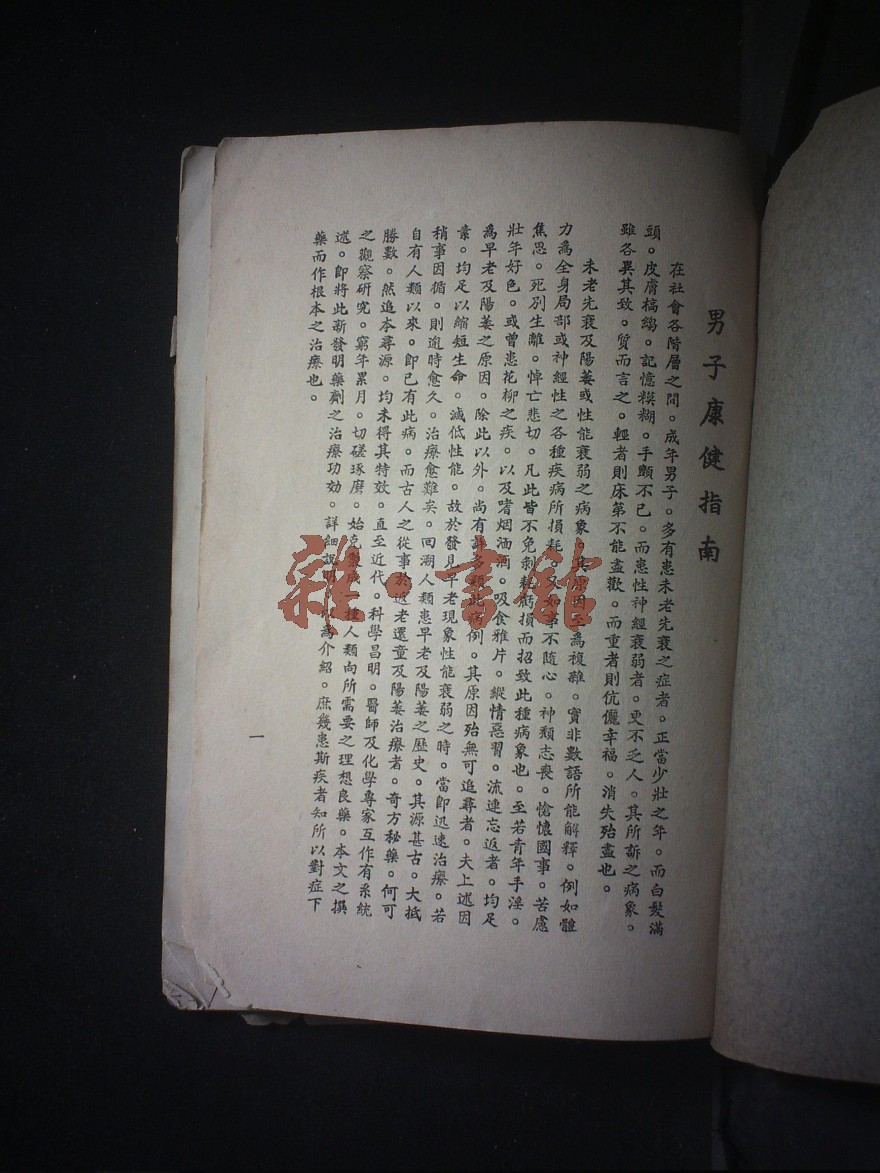 男子康健指南
在社會各階層之間。成年男子。多有患未老先衰之症者。正當少壯之年。而白髮滿
頭。皮膚槁縐。記憶糢糊。手顫不已。而患性神經衰弱者。更不乏人。其所訴之病象。
雖各異其致。質而言之。輕者則床第不能盡歡。而重者則伉儷幸福。消失殆盡也。
未老先衰及陽萎或性能衰弱之病象。其原因至爲複雜。實非數語所能解釋。例如體
力爲全身局部或神經性之各種疾病所損耗。又如事不隨心。神頹志喪。愴懷國事。苦慮
焦思。死別生離。悼亡悲切。凡此皆不免剝耗虧損而招致此種病象也。至若青年手淫。
壯年好色。或曾患花柳之疾。以及嗜烟酒。吸食雅片。縱情惡習。流連忘返者。均足
爲早老及陽萎之原因。除此以外。尚有許多類此病例。其原因殆無可追尋者。夫上述因
素。均足以縮短生命。減低性能。故於發見早老現象性能衰弱之時。當即迅速治療。若
稍事因循。則逾時愈久。治療愈難矣。回溯人類患早老及陽萎之歷史。其源甚古。大抵
自有人類以來。即已有此病。而古人之從事於返老還童及陽萎治療者。奇方秘藥。何可
勝數。然追本尋源。均未得其特效。直至近代。科學昌明。醫師及化學專家互作有系統
之觀察研究。窮年累月。切磋琢磨。始克製成種人類向所需要之理想良藥。本文之撰
述。即將此新發明藥劑之治療功効。詳細說明以爲介紹。庶幾患斯疾者知所以對症下
藥而作根本之治療也。
一
雜·書館